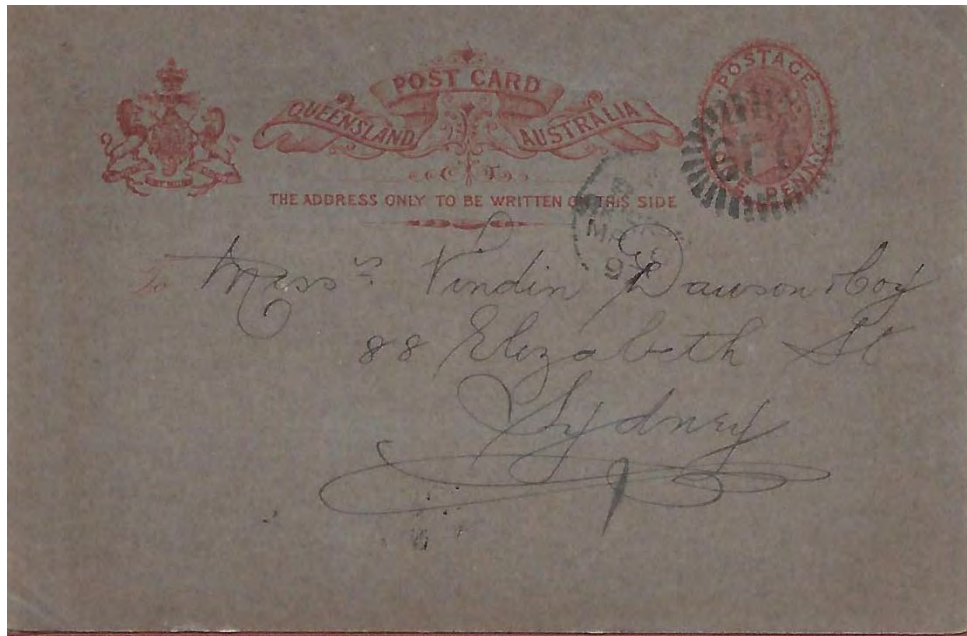 POST CARD
QUEENSLAND AUSTRALIA
POSTAGE
PENNY
THE ADDRESS ONLY TO BE WRITTEN ON THIS SIDE
To Mess rs Vindin Dawson & Coy
88 Elizabeth St
Sydney